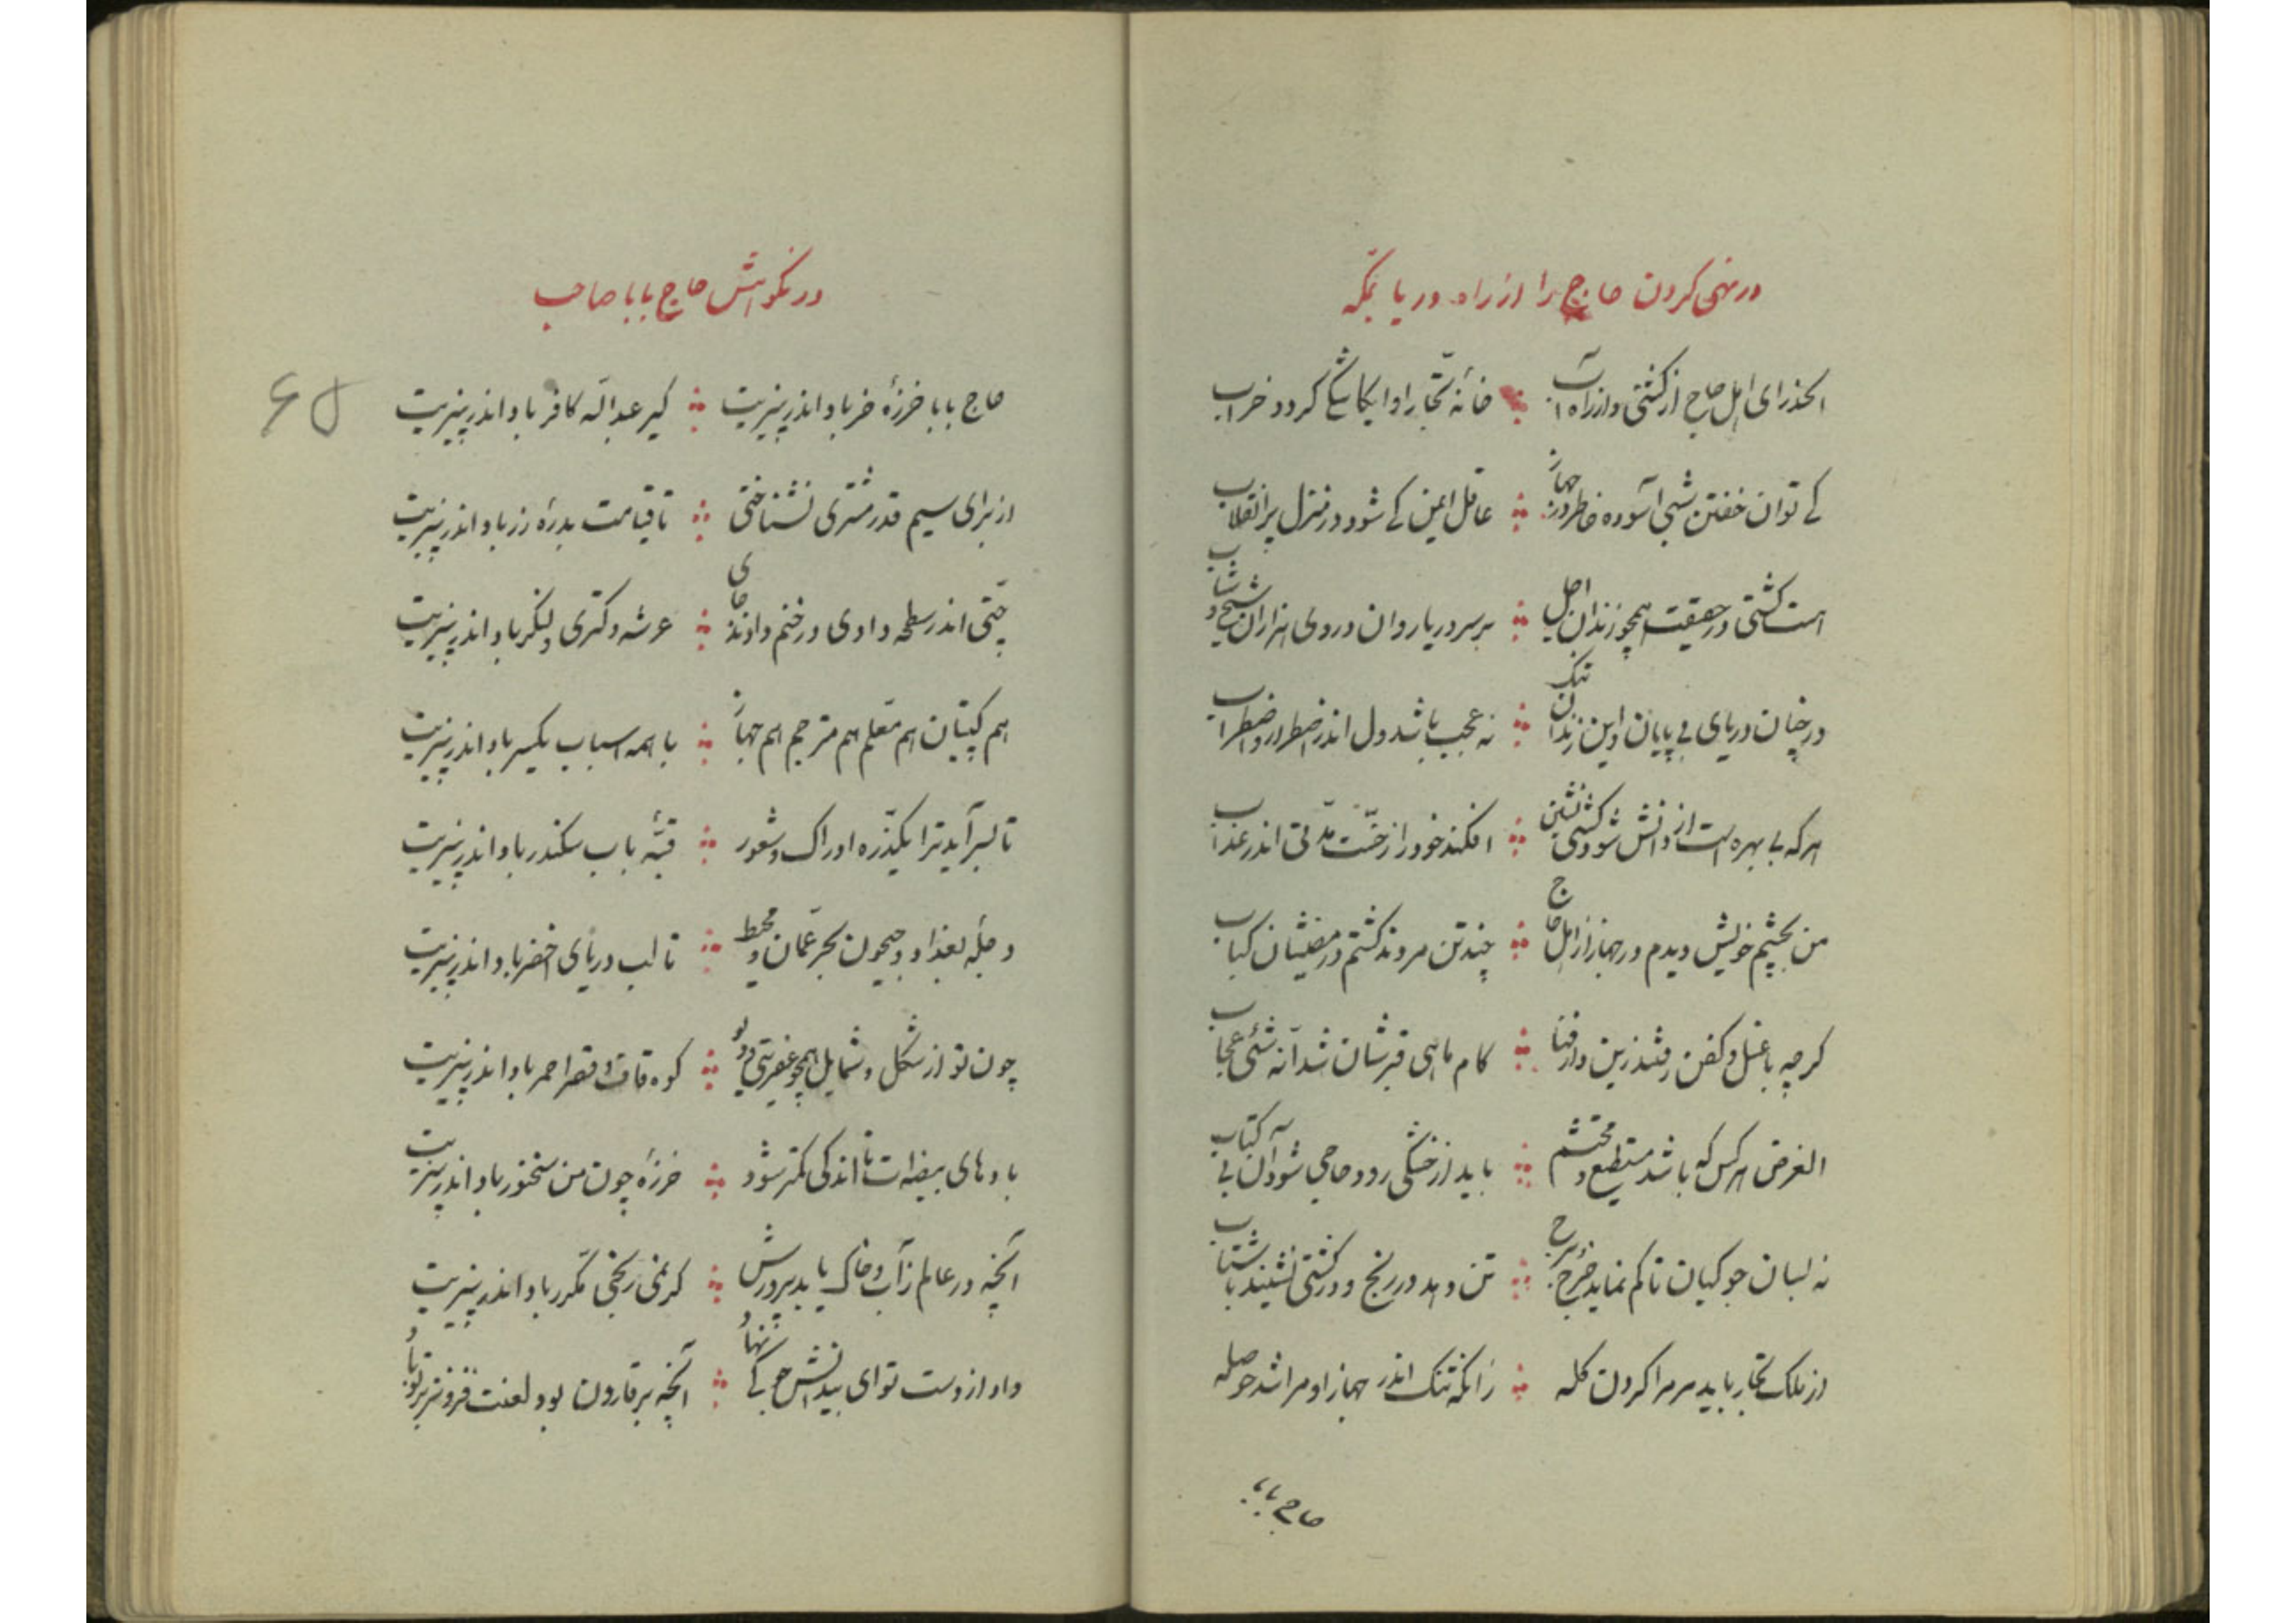 در نهی کردن حاج را از راه دریا بمکه
الحذر ای اهل حاج از کشتی و از راه آب خانه تجار را و ایکاشکی گردد خراب
کے توان خفتن شبی آسوده خاطر در جهاز عاقل ایمن کے شود در منزل پر انقلاب
هست کشتی در حقیقت همچو زندان اجل بر سر دریا روان در وی هزاران شیخ و شاب
در چنان دریای بی پایان و این زندان تنک نه عجب باشد دل اندر اضطرار و اضطراب
هر که بی بهره است از دانش شود کشتی نشین افکند خود را ز خست مدتی اندر عذاب
من بچشم خویش دیدم در جهاز از اهل حاج چند تن مردند گشتم در مصیبتشان کباب
گرچه با غسل و کفن رفتند زین دار فنا کام ماهی قبرشان شد آنه شئی عجاب
الغرض هر کس که باشد مستطیع و محتشم باید از خشکی رود حاجی شود آن بی کتاب
نه بسان جوکیان تا کم نماید خرج برج تن دهد در رنج و در کشتی نشیند با شتاب
از ملک تجار باید مر مرا کردن گله زانکه تنک اندر جهاز او مرا شد حوصله
حاج بابا
در نکوهش حاج بابا صاحب
۶۵
حاج بابا خرزهٔ خر باد اندر پیزیت کیر عبدالله کافر باد اندر پیزیت
از برای سیم قدر مشتری نشناختی تا قیامت بدرهٔ زر باد اندر پیزیت
چتی اندر سطحه دادی در خنم دادند جای عرشه و کتری و لنگر باد اندر پیزیت
هم کپتان هم معلم هم مترجم هم جهاز با همه اسباب یکسر باد اندر پیزیت
تا بسر آید ترا یکذره ادراک و شعور قبهٔ باب سکندر باد اندر پیزیت
دجلهٔ بغداد و جیحون بحر عمان و محیط تا لب دریای اخضر باد اندر پیزیت
چون تو از شکل و شمایل همچو عفریتی و دیو کوه قاف و قصر احمر باد اندر پیزیت
بادهای بیضه ات تا اندکی کمتر شود خرزهٔ چون من سخنور باد اندر پیزیت
آنچه در عالم ز آب و خاک یابد پرورش گر نمی رنجی مکرر باد اندر پیزیت
داد از دست تو ای بیدانش جوکی نهاد آنچه بر قارون بود لعنت فزونتر بر تو باد